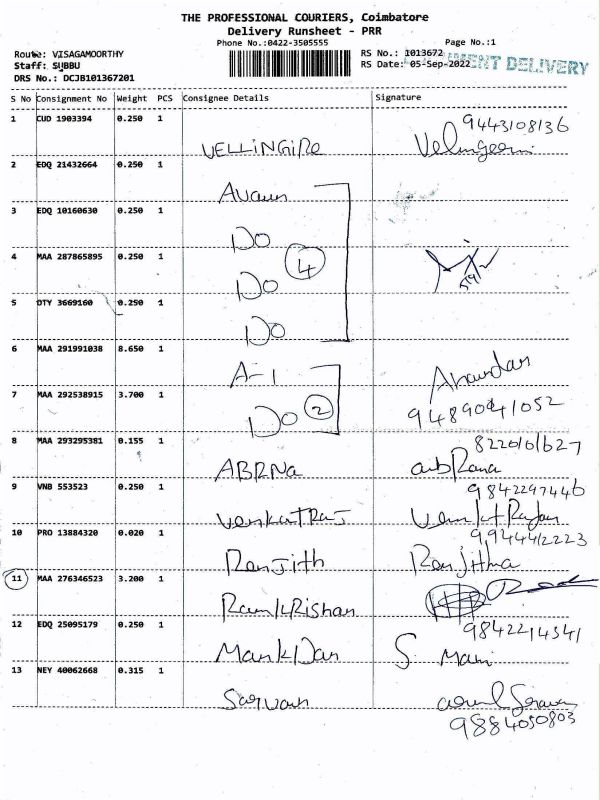 THE PROFESSIONAL COURIERS, Coimbatore
Delivery Runsheet - PRR
Phone No.:0422-3505555 Page No.:1
Route: VISAGAMOORTHY RS No.: 1013672
Staff: SUBBU RS Date: 05-Sep-2022 DELIVERY
DRS No.: DCJB101367201
S No Consignment No Weight PCS Consignee Details Signature
1 CUD 1903394 0.250 1 9443108136
VELLiNGiRe
2 EDQ 21432664 0.250 1
3 EDQ 10160630 0.250 1
Do
4 MAA 287865895 0.250 1 4
Do
5 DTY 3669160 0.250 1
Do
6 MAA 291991038 8.650 1
A-1
7 MAA 292538915 3.700 1
Do 2
8 MAA 293295381 0.155 1 8220101627
ABRNa
9 VNB 553523 0.250 1 9842297446
VenkatRaj
10 PRO 13884320 0.020 1
Renjith Renjitha
11 MAA 276346523 3.200 1
RamkRishan
12 EDQ 25095179 0.250 1
S. Mani
13 NEY 40062668 0.315 1
9884050803